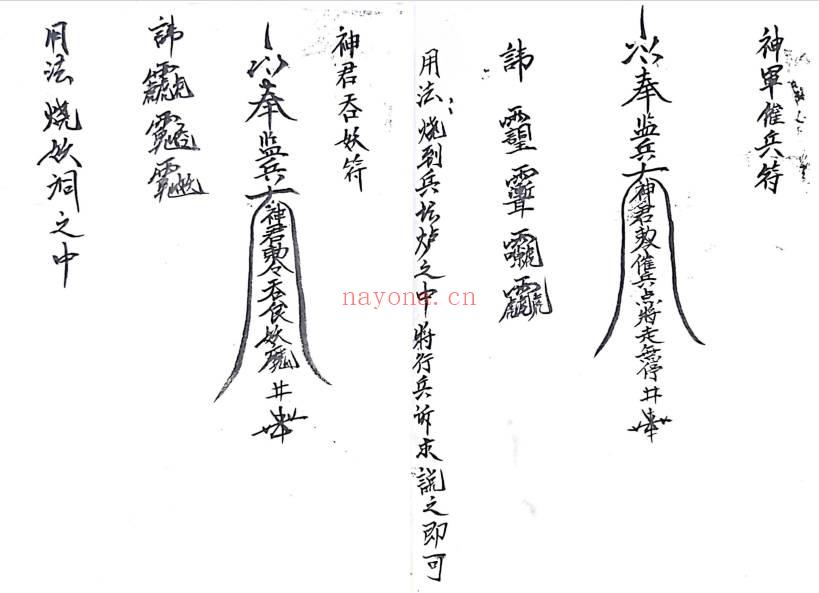 神軍催兵符
奉监兵大神君敕令催兵点將走無停井
諱
用法:烧到兵坛炉之中將行兵诉求説之即可
神君吞妖符
奉监兵大神君敕令吞食妖魔井
諱
用法烧妖洞之中
nayona.cn